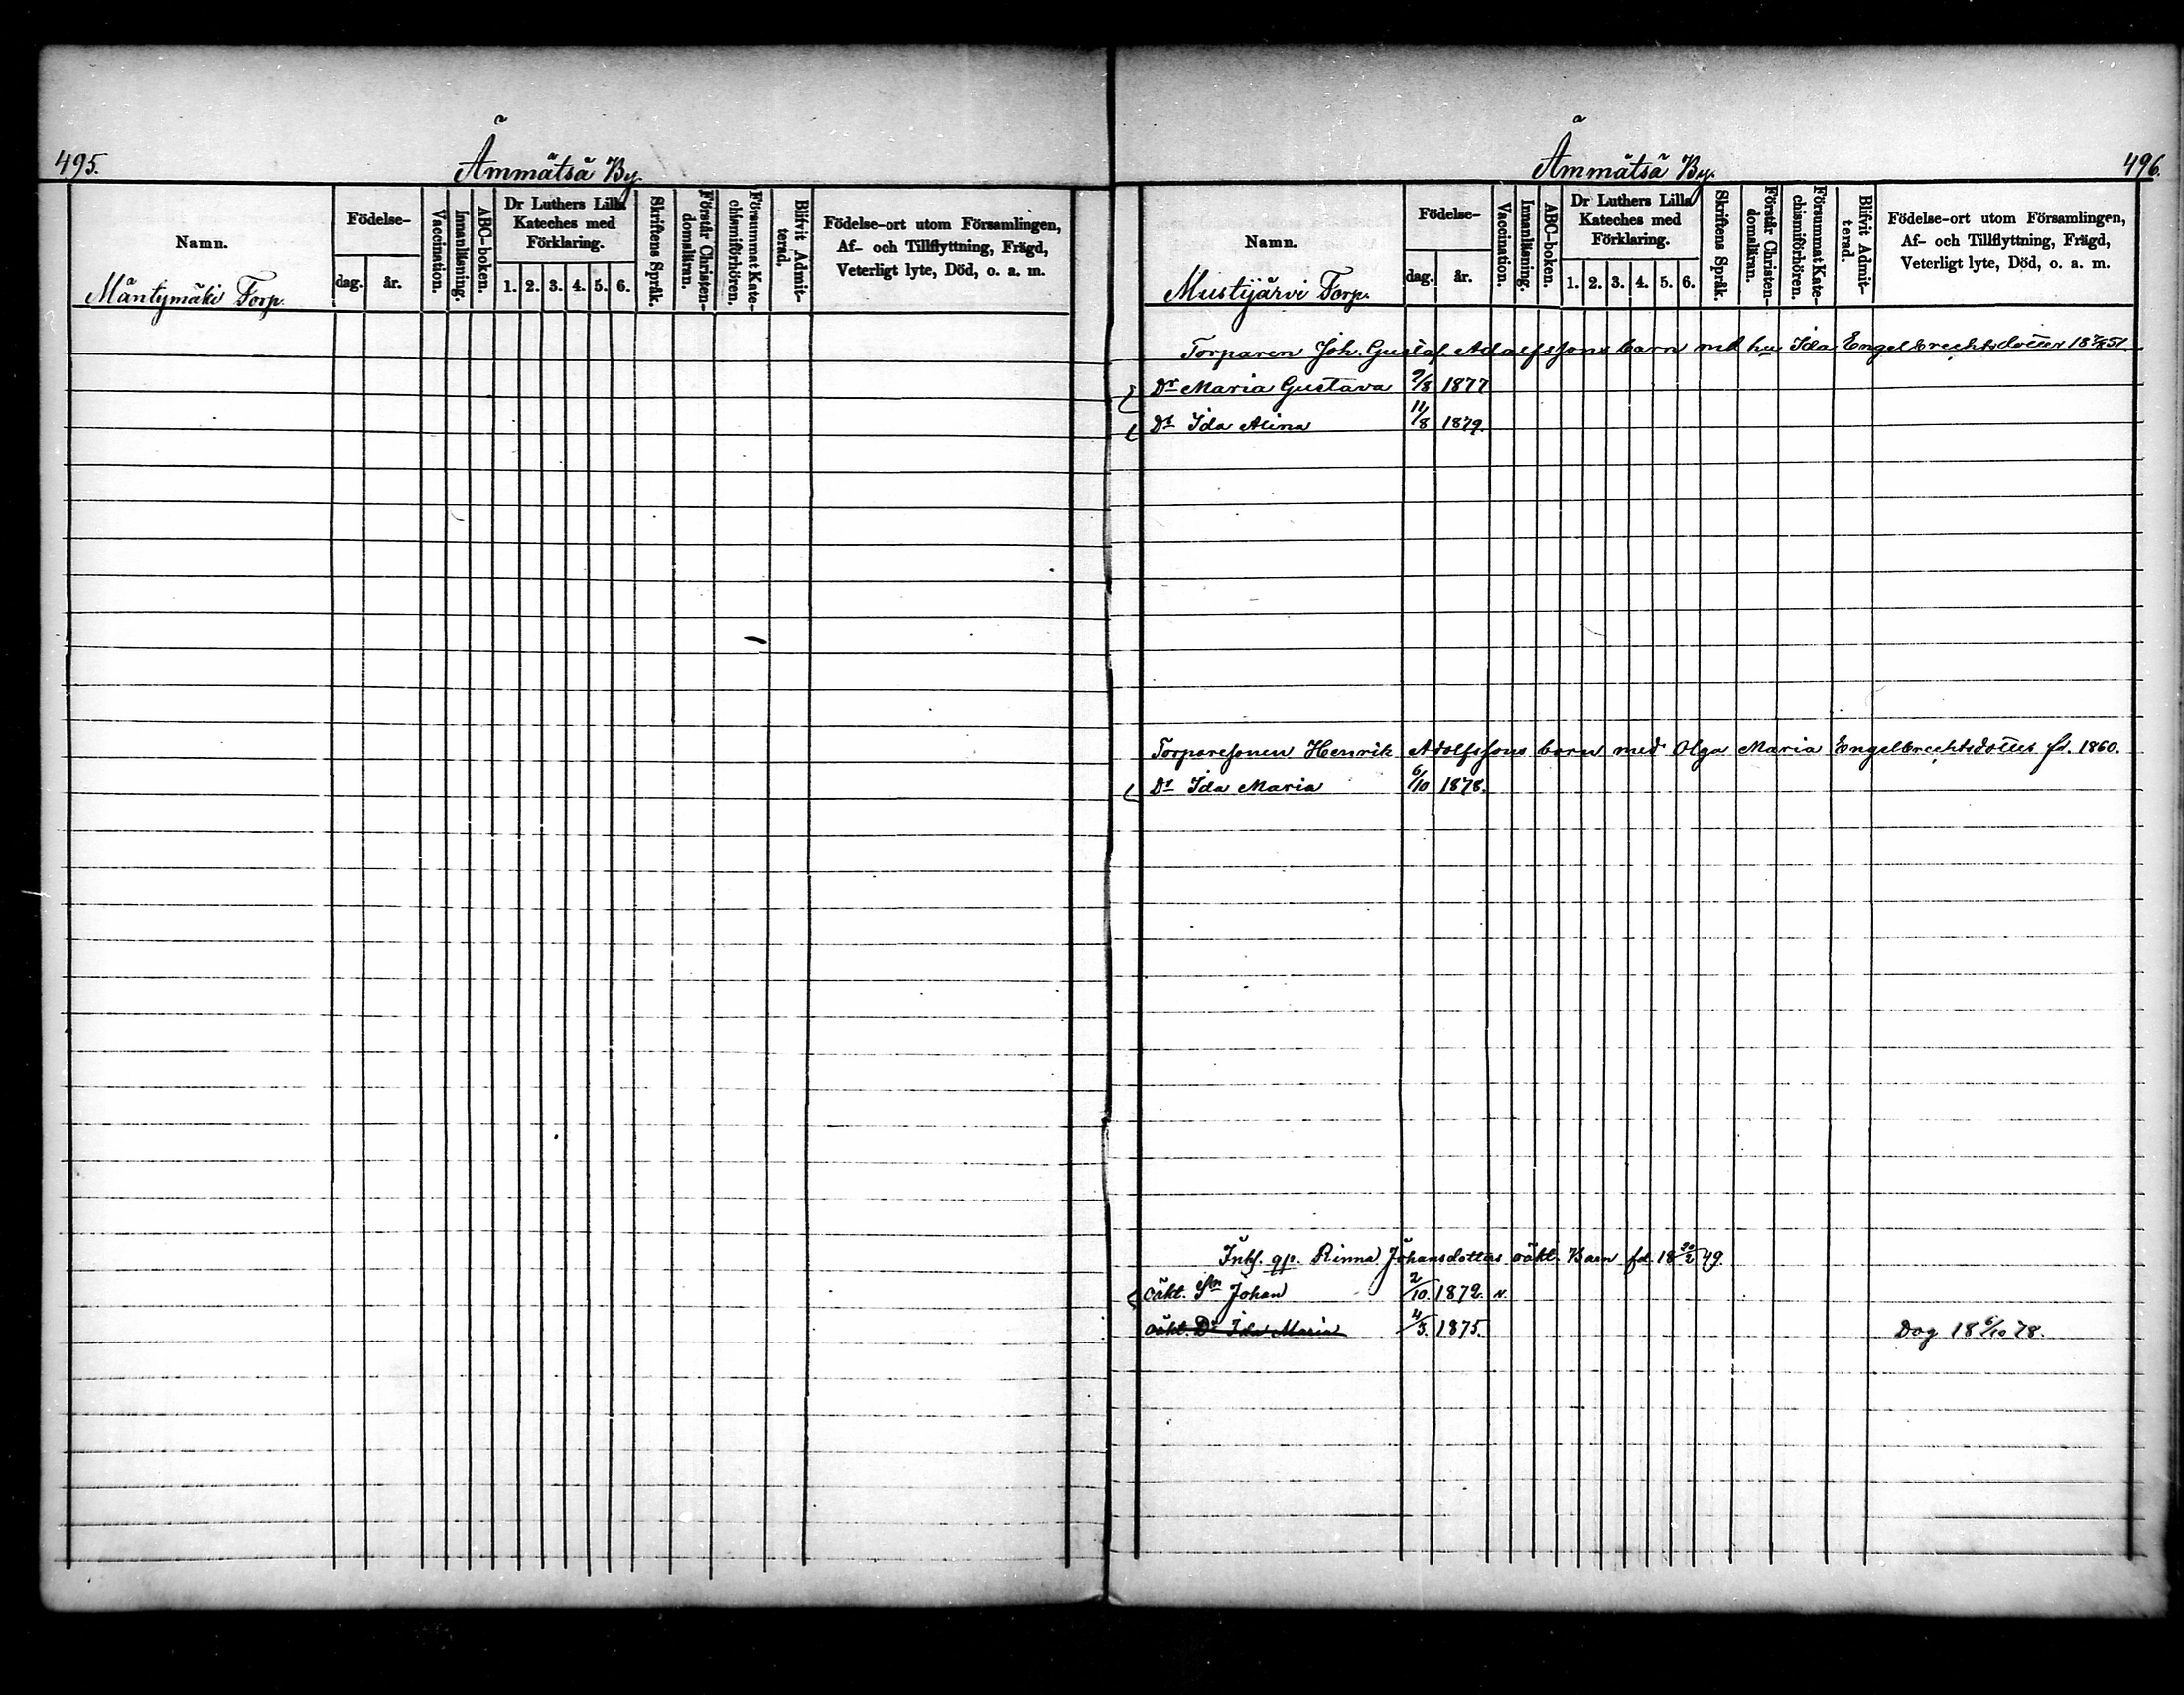 495.
Ämmätsä By
Namn.
Mäntymäki Torp.
Födelse-
dag.
år.
Vaccination.
Innanläsning.
ABC-boken.
Dr Luthers Lilla
Kateches med
Förklaring.
1. 2. 3. 4. 5. 6.
Skriftens Språk.
Förstår Christen-
domsläran.
Försummat Kate-
chismiförhören.
Blifvit Admit-
terad.
Födelse-ort utom Församlingen,
Af- och Tillflyttning, Frägd,
Veterligt lyte, Död, o. a. m.
Ämmätsä By.
496.
Namn.
Mustijärvi Torp.
Födelse-
dag.
år.
Vaccination.
Innanläsning.
ABC-boken.
Dr Luthers Lilla
Kateches med
Förklaring.
1. 2. 3. 4. 5. 6.
Skriftens Språk.
Förstår Christen-
domsläran.
Försummat Kate-
chismiförhören.
Blifvit Admit-
terad.
Födelse-ort utom Församlingen,
Af- och Tillflyttning, Frägd,
Veterligt lyte, Död, o. a. m.
Torparen Joh. Gustaf Adolfssons barn med hu Ida Engelbrechtsdotter
Dr Maria Gustava 9/8 1877
Dr Ida Alina 11/8 1879.
Torparesonen Henrik Adolfssons barn med Olga Maria Engelbrechtsdotter fd. 1860.
Dr Ida Maria 6/10 1878.
Inhs. qp. Rinna Johansdotters oäkt. Barn fd. 18 20/2 49.
oäkt. Sn Johan 2/10. 1872. v.
oäkt. Dr Ida Maria 4/3. 1875. Dog 18 6/10 78.